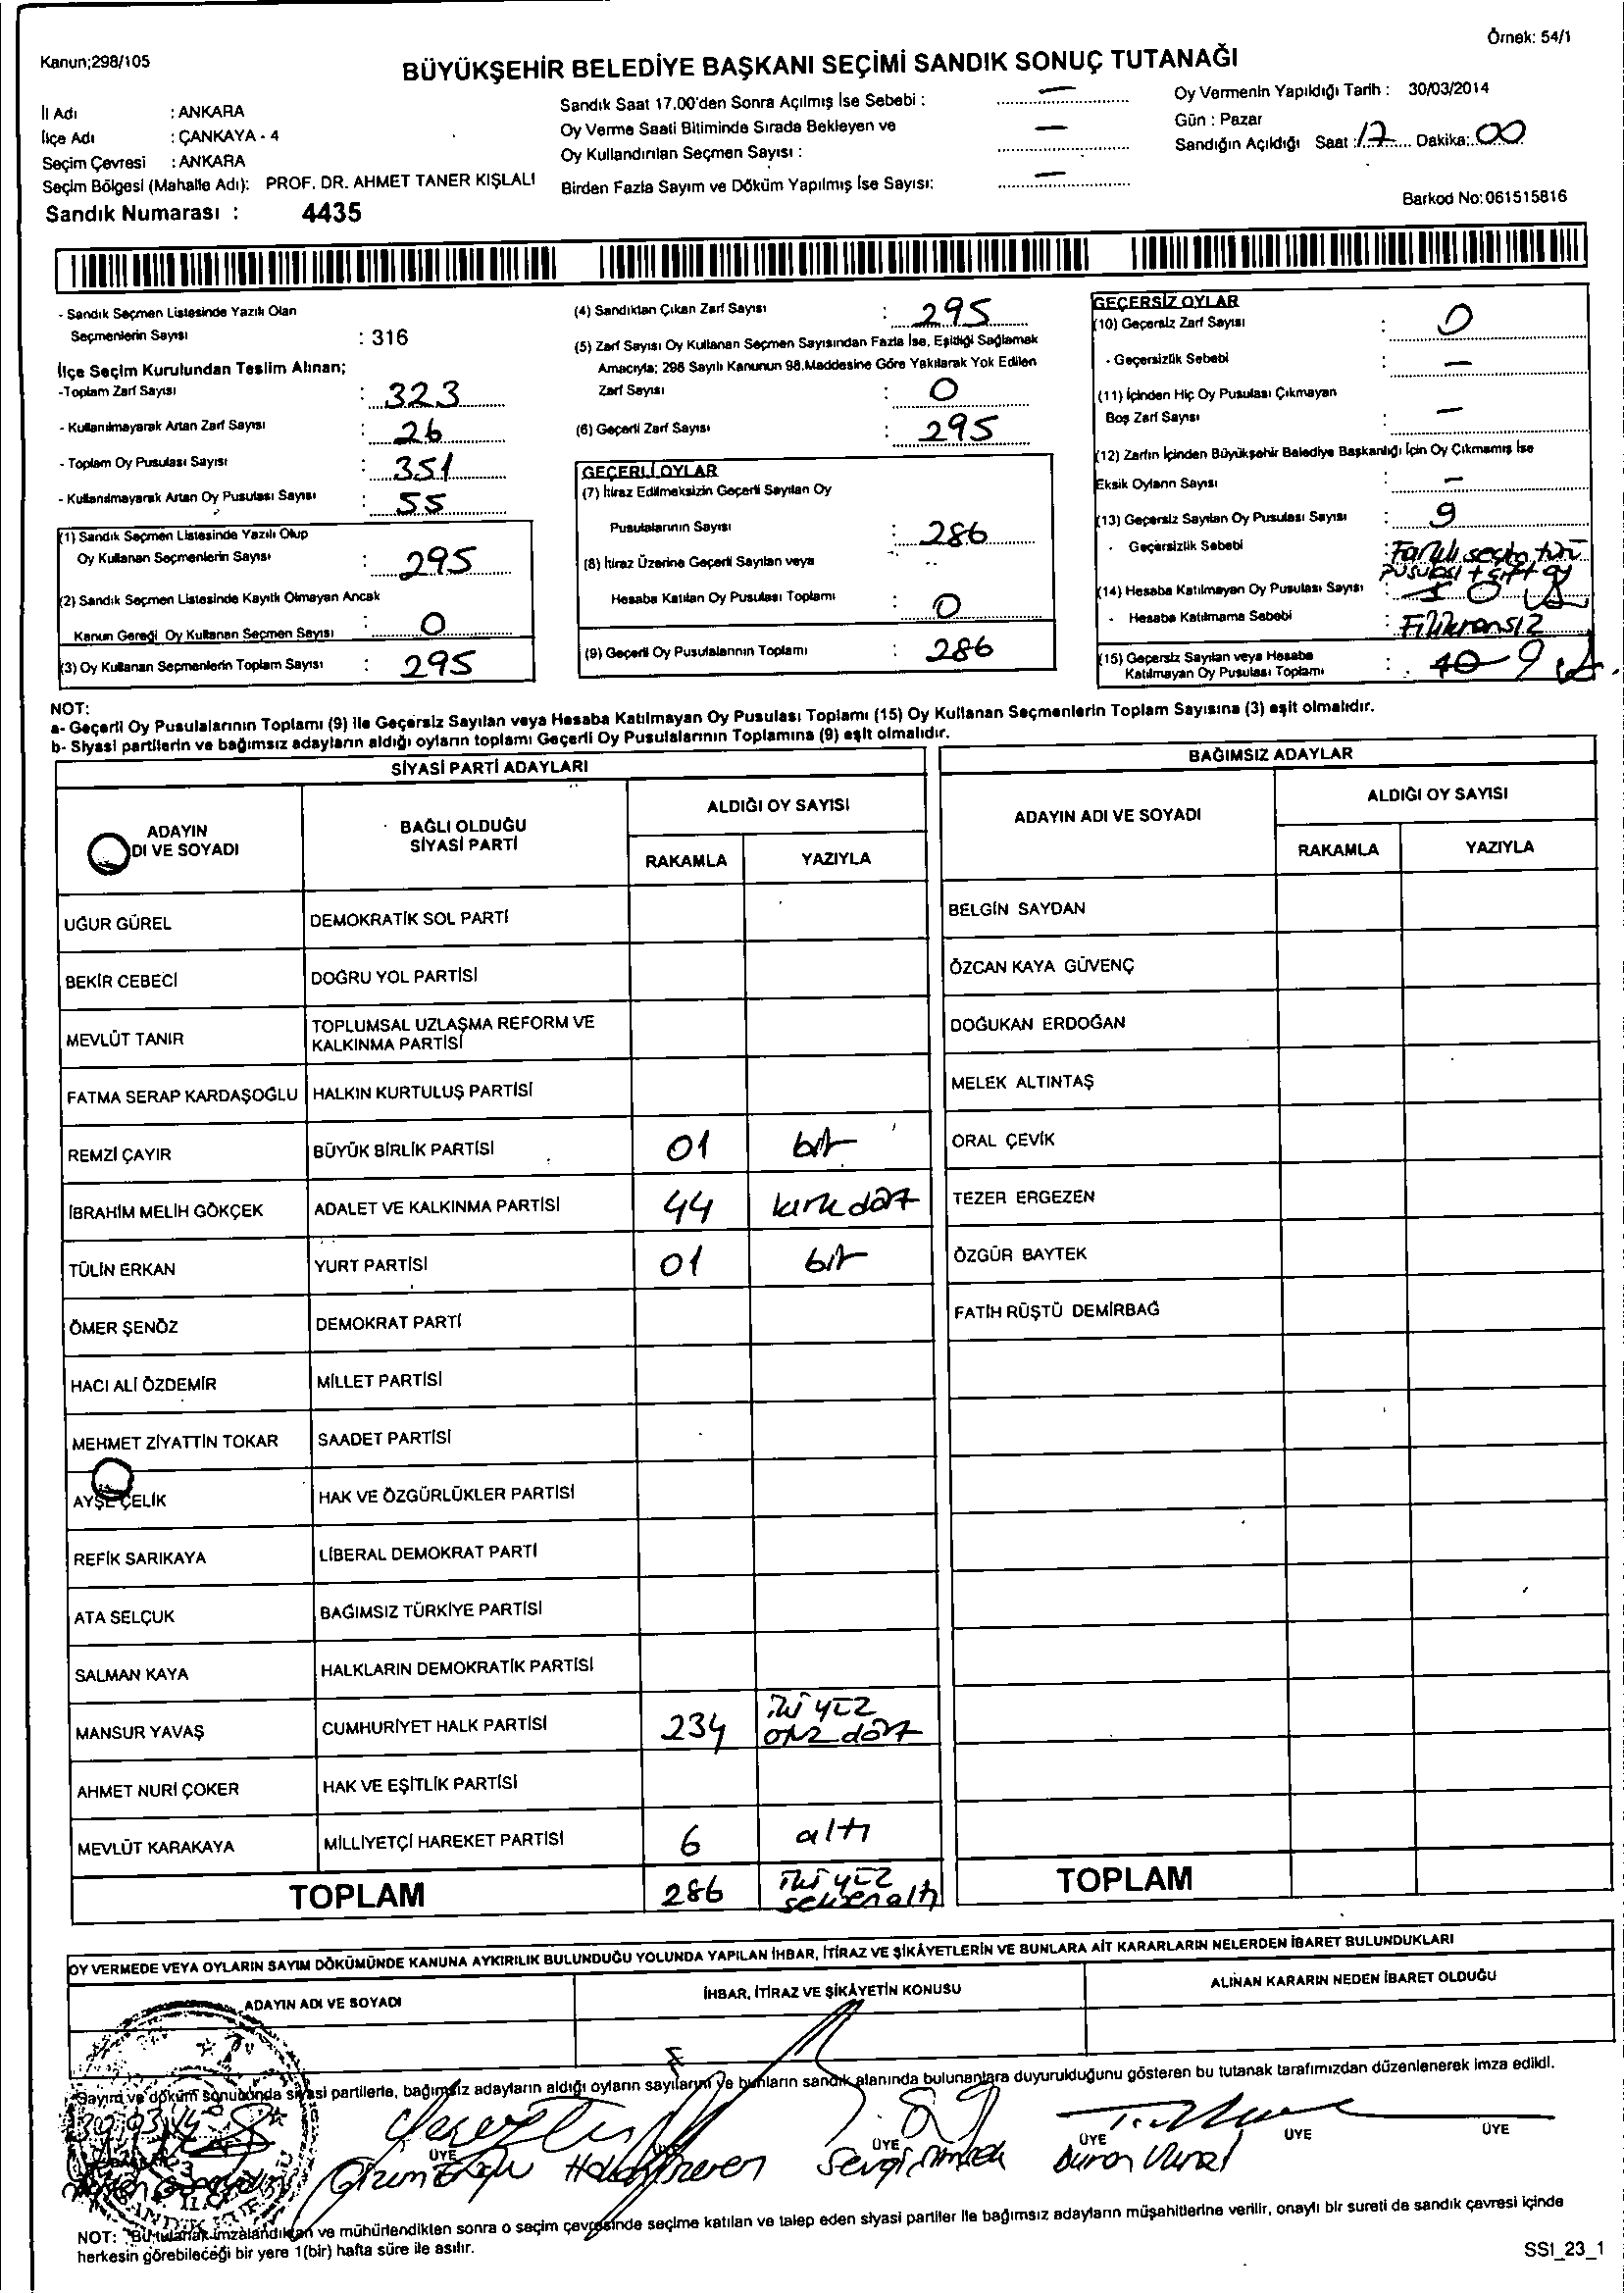 Örnek: 54/1
Kanun;298/105
BÜYÜKŞEHİR BELEDİYE BAŞKANI SEÇİMİ SANDIK SONUÇ TUTANAĞI
İl Adı : ANKARA
İlçe Adı : ÇANKAYA - 4
Seçim Çevresi : ANKARA
Seçim Bölgesi (Mahalle Adı): PROF. DR. AHMET TANER KIŞLALI
Sandık Numarası : 4435
Sandık Saat 17.00'den Sonra Açılmış İse Sebebi : —
Oy Verme Saati Bitiminde Sırada Bekleyen ve —
Oy Kullandırılan Seçmen Sayısı :
Birden Fazla Sayım ve Döküm Yapılmış İse Sayısı: —
Oy Vermenin Yapıldığı Tarih : 30/03/2014
Gün : Pazar
Sandığın Açıldığı Saat : 17 Dakika: 00
Barkod No:061515816
- Sandık Seçmen Listesinde Yazılı Olan
Seçmenlerin Sayısı : 316
İlçe Seçim Kurulundan Teslim Alınan;
-Toplam Zarf Sayısı : 323
- Kullanılmayarak Artan Zarf Sayısı : 26
- Toplam Oy Pusulası Sayısı : 351
- Kullanılmayarak Artan Oy Pusulası Sayısı : 55
(1) Sandık Seçmen Listesinde Yazılı Olup
Oy Kullanan Seçmenlerin Sayısı : 295
(2) Sandık Seçmen Listesinde Kayıtlı Olmayan Ancak
Kanun Gereği Oy Kullanan Seçmen Sayısı : 0
(3) Oy Kullanan Seçmenlerin Toplam Sayısı : 295
(4) Sandıktan Çıkan Zarf Sayısı : 295
(5) Zarf Sayısı Oy Kullanan Seçmen Sayısından Fazla İse, Eşitliği Sağlamak
Amacıyla; 298 Sayılı Kanunun 98.Maddesine Göre Yakılarak Yok Edilen
Zarf Sayısı : 0
(6) Geçerli Zarf Sayısı : 295
GEÇERLİ OYLAR
(7) İtiraz Edilmeksizin Geçerli Sayılan Oy
Pusulalarının Sayısı : 286
(8) İtiraz Üzerine Geçerli Sayılan veya
Hesaba Katılan Oy Pusulası Toplamı : 0
(9) Geçerli Oy Pusulalarının Toplamı : 286
GEÇERSİZ OYLAR
(10) Geçersiz Zarf Sayısı : 0
- Geçersizlik Sebebi : —
(11) İçinden Hiç Oy Pusulası Çıkmayan
Boş Zarf Sayısı : —
(12) Zarfın İçinden Büyükşehir Belediye Başkanlığı İçin Oy Çıkmamış İse
Eksik Oyların Sayısı : —
(13) Geçersiz Sayılan Oy Pusulası Sayısı : 9
- Geçersizlik Sebebi : Farklı seçim tür
pusulası + çift oy
(14) Hesaba Katılmayan Oy Pusulası Sayısı : 0
- Hesaba Katılmama Sebebi : Filikransız
(15) Geçersiz Sayılan veya Hesaba
Katılmayan Oy Pusulası Toplamı : 10 9
NOT:
a- Geçerli Oy Pusulalarının Toplamı (9) ile Geçersiz Sayılan veya Hesaba Katılmayan Oy Pusulası Toplamı (15) Oy Kullanan Seçmenlerin Toplam Sayısına (3) eşit olmalıdır.
b- Siyasi partilerin ve bağımsız adayların aldığı oyların toplamı Geçerli Oy Pusulalarının Toplamına (9) eşit olmalıdır.
SİYASİ PARTİ ADAYLARI
ADAYIN
DI VE SOYADI
BAĞLI OLDUĞU
SİYASİ PARTİ
ALDIĞI OY SAYISI
RAKAMLA YAZIYLA
UĞUR GÜREL DEMOKRATİK SOL PARTİ
BEKİR CEBECİ DOĞRU YOL PARTİSİ
MEVLÜT TANIR TOPLUMSAL UZLAŞMA REFORM VE
KALKINMA PARTİSİ
FATMA SERAP KARDAŞOĞLU HALKIN KURTULUŞ PARTİSİ
REMZİ ÇAYIR BÜYÜK BİRLİK PARTİSİ 01 bir
İBRAHİM MELİH GÖKÇEK ADALET VE KALKINMA PARTİSİ 44 kırk dört
TÜLİN ERKAN YURT PARTİSİ 01 bir
ÖMER ŞENÖZ DEMOKRAT PARTİ
HACI ALİ ÖZDEMİR MİLLET PARTİSİ
MEHMET ZİYATTİN TOKAR SAADET PARTİSİ
AYŞE ÇELİK HAK VE ÖZGÜRLÜKLER PARTİSİ
REFİK SARIKAYA LİBERAL DEMOKRAT PARTİ
ATA SELÇUK BAĞIMSIZ TÜRKİYE PARTİSİ
SALMAN KAYA HALKLARIN DEMOKRATİK PARTİSİ
MANSUR YAVAŞ CUMHURİYET HALK PARTİSİ 234 iki yüz
otuz dört
AHMET NURİ ÇOKER HAK VE EŞİTLİK PARTİSİ
MEVLÜT KARAKAYA MİLLİYETÇİ HAREKET PARTİSİ 6 altı
TOPLAM 286 iki yüz
seksen altı
BAĞIMSIZ ADAYLAR
ADAYIN ADI VE SOYADI
ALDIĞI OY SAYISI
RAKAMLA YAZIYLA
BELGİN SAYDAN
ÖZCAN KAYA GÜVENÇ
DOĞUKAN ERDOĞAN
MELEK ALTINTAŞ
ORAL ÇEVİK
TEZER ERGEZEN
ÖZGÜR BAYTEK
FATİH RÜŞTÜ DEMİRBAĞ
TOPLAM
OY VERMEDE VEYA OYLARIN SAYIM DÖKÜMÜNDE KANUNA AYKIRILIK BULUNDUĞU YOLUNDA YAPILAN İHBAR, İTİRAZ VE ŞİKÂYETLERİN VE BUNLARA AİT KARARLARIN NELERDEN İBARET BULUNDUKLARI
ADAYIN ADI VE SOYADI
İHBAR, İTİRAZ VE ŞİKÂYETİN KONUSU
ALINAN KARARIN NEDEN İBARET OLDUĞU
Sayım ve döküm sonucunda siyasi partilerle, bağımsız adayların aldığı oyların sayılarını ve bunların sandık alanında bulunanlara duyurulduğunu gösteren bu tutanak tarafımızdan düzenlenerek imza edildi.
ÜYE ÜYE ÜYE ÜYE ÜYE
NOT: Bu tutanak imzalandıktan ve mühürlendikten sonra o seçim çevresinde seçime katılan ve talep eden siyasi partiler ile bağımsız adayların müşahitlerine verilir, onaylı bir sureti de sandık çevresi içinde
herkesin görebileceği bir yere 1(bir) hafta süre ile asılır.
SSI_23_1